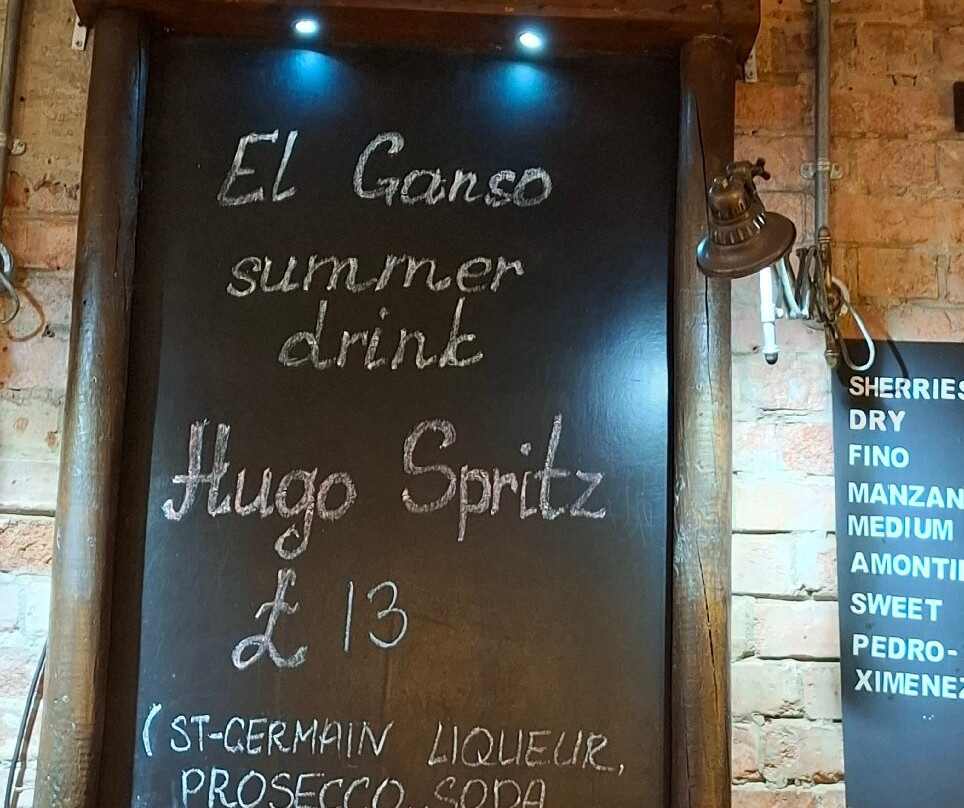 El Ganso
summer
drink
Hugo Spritz
£ 13
(ST-GERMAIN LIQUEUR,
PROSECCO, SODA
SHERRIES
DRY
FINO
MANZAN
MEDIUM
AMONTI
SWEET
PEDRO-
XIMENEZ